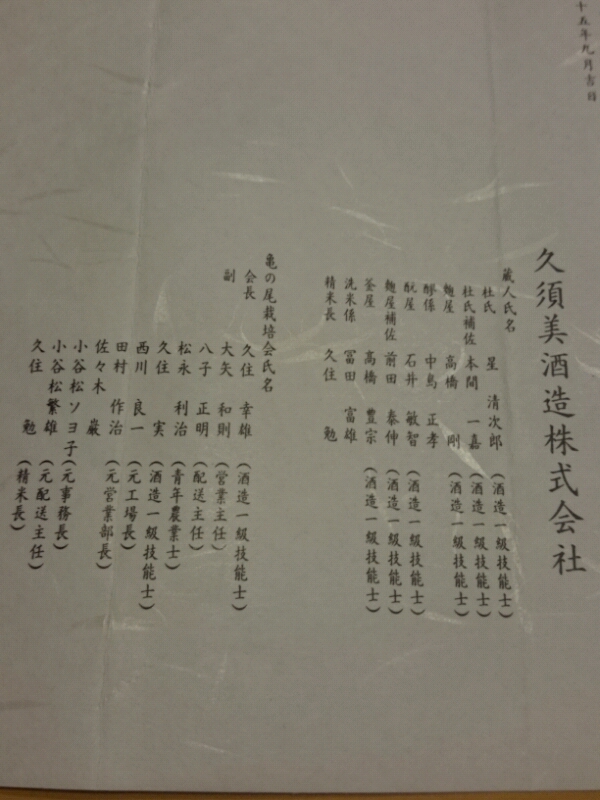 十五年九月吉日
久須美酒造株式会社
蔵人氏名
杜氏 星 清次郎 (酒造一級技能士)
杜氏補佐 本間 一嘉 (酒造一級技能士)
麹屋 高橋 剛 (酒造一級技能士)
醪係 中島 正孝
酛屋 石井 敏智 (酒造一級技能士)
麹屋補佐 前田 泰伸 (酒造一級技能士)
釜屋 高橋 豊宗 (酒造一級技能士)
洗米係 冨田 富雄
精米長 久住 勉
亀の尾栽培会氏名
会長 久住 幸雄 (酒造一級技能士)
副 大矢 和則 (営業主任)
八子 正明 (配送主任)
松永 利治 (青年農業士)
久住 実 (酒造一級技能士)
西川 良一 (元工場長)
田村 作治 (元営業部長)
佐々木 巌
小谷松ソヨ子 (元事務長)
小谷松繁雄 (元配送主任)
久住 勉 (精米長)